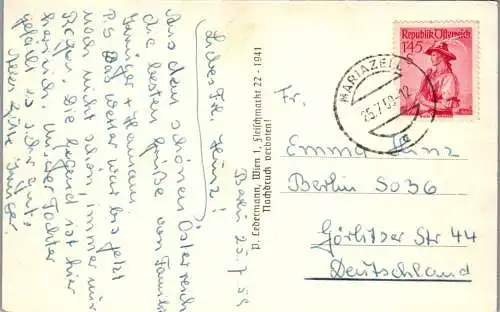 Baun 25.7.59
Liebes Frl. Hinz!
Aus dem schönen Österreich
die besten Grüße von Familie
Krüger + Hermann
P.S Das Wetter war bis jetzt
noch nicht schön, immer nur
Regen. Die Gegend ist hier
herrlich, uns. der Tochter
gefällt es sehr gut,
Krüger
P. Ledermann, Wien 1, Fleischmarkt 22 - 1941
Nachdruck verboten!
Republik Österreich
1 S 45
MARIAZELL
25.7.59-12
a
Fr.
Emmy Hinz
Berlin SO36
Görlitzer Str 44
Deutschland